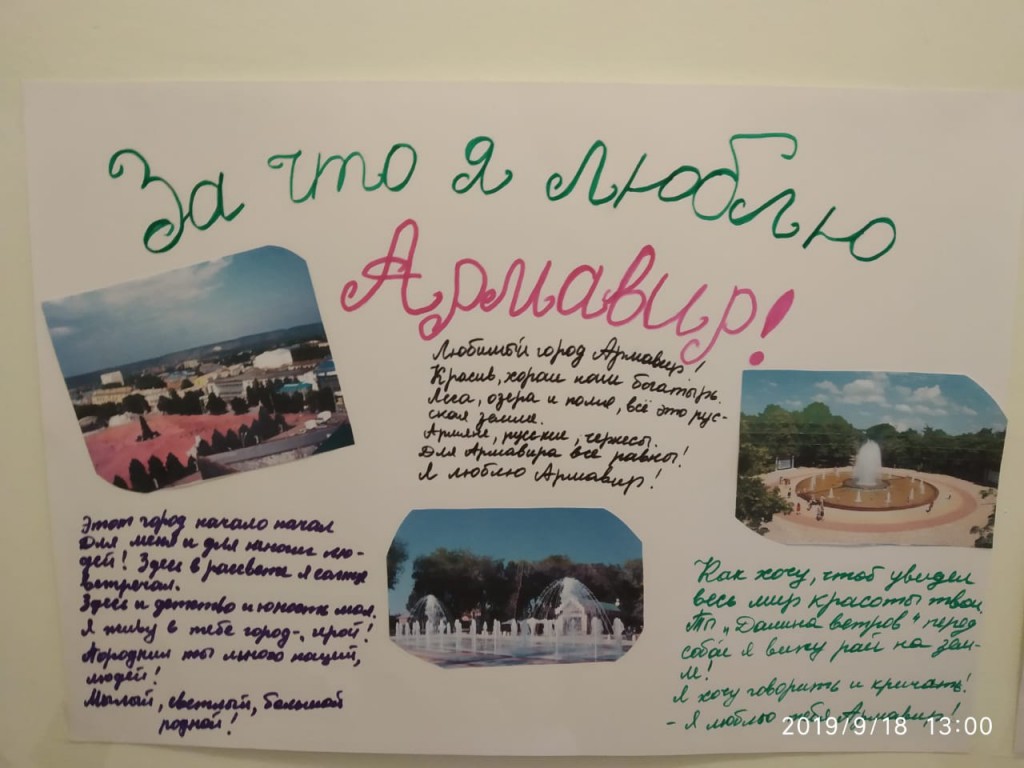 За что я люблю
Армавир!
Любимый город Армавир!
Красив, хорош наш богатырь.
Леса, озера и поля, всё это рус-
ская земля.
Армяне, русские, черкесы.
Для Армавира все равны!
Я люблю Армавир!
Этот город начало начал
для меня и для многих лю-
дей! Здесь в рассвете я солнце
встречал.
Здесь и детство и юность моя.
Я живу в тебе город-, герой!
Породнил ты много наций,
людей!
Милый, светлый, большой
родной!
Как хочу, чтоб увидел
весь мир красоты твои
Ты "Долина ветров" перед
собой я вижу рай на зем-
ле!
Я хочу говорить и кричать!
- Я люблю тебя Армавир!
2019/9/18 13:00